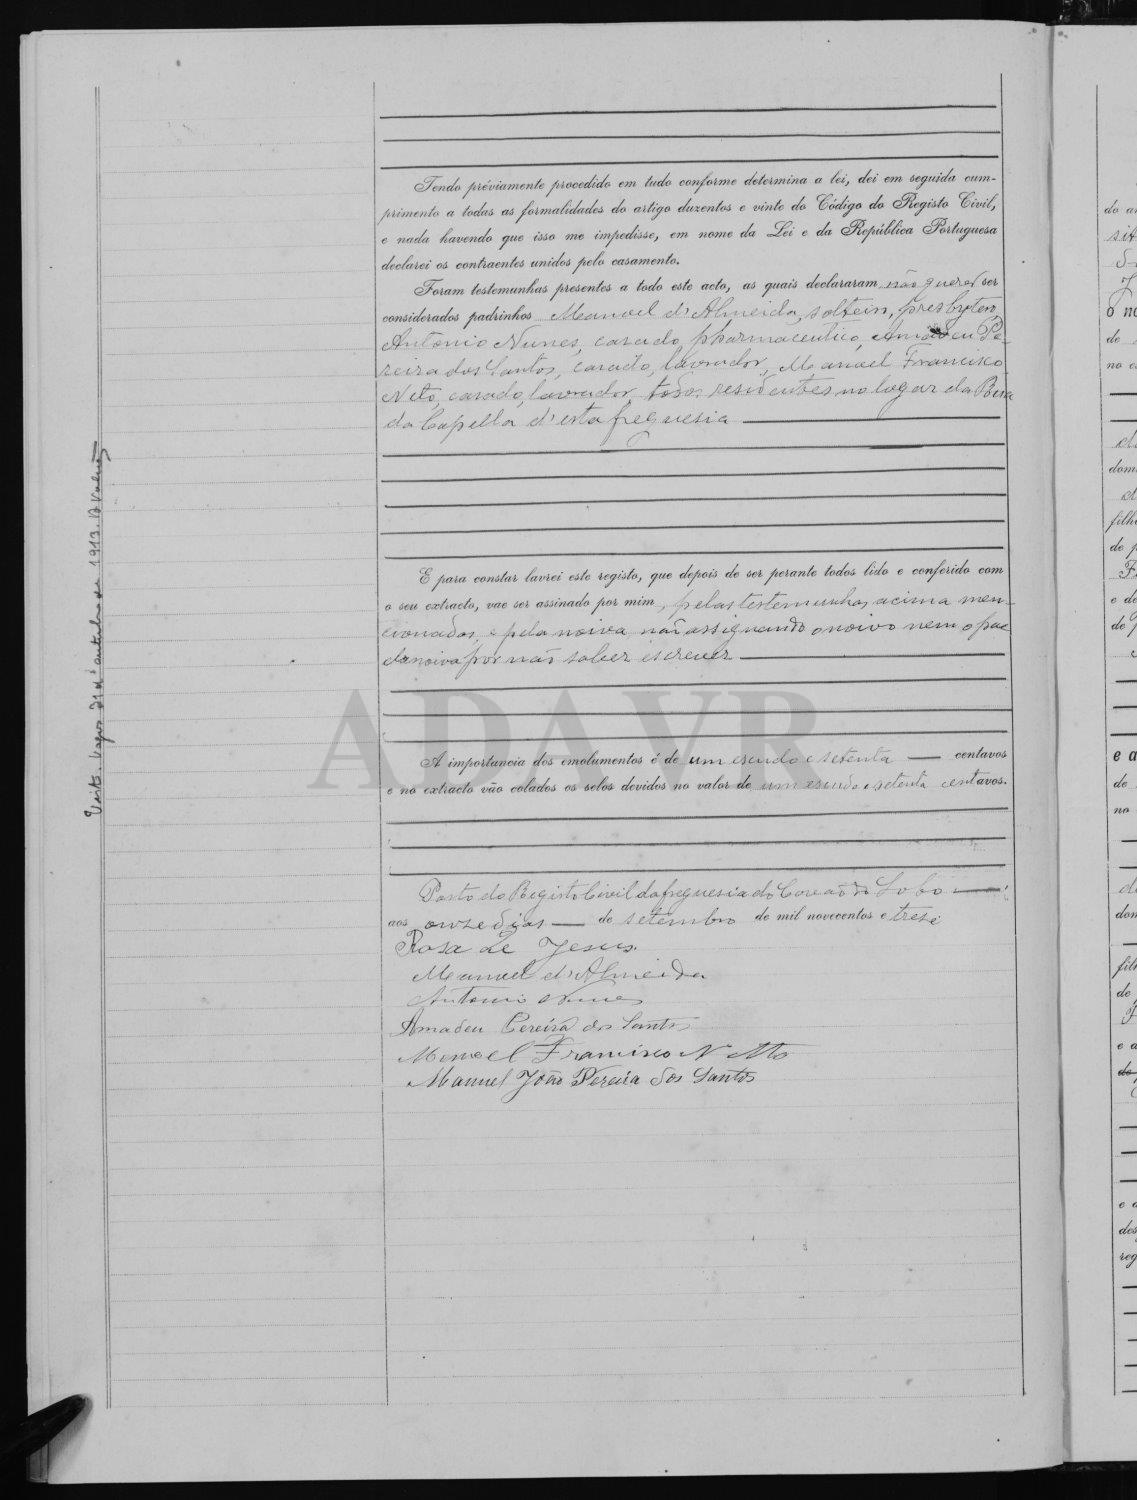 Tendo préviamente procedido em tudo conforme determina a lei, dei em seguida cum-
primento a todas as formalidades do artigo duzentos e vinte do Código do Registo Civil,
e nada havendo que isso me impedisse, em nome da Lei e da República Portuguesa
declarei os contraentes unidos pelo casamento.
Foram testemunhas presentes a todo este acto, as quais declararam não querer ser
considerados padrinhos Manoel d'Almeida, solteiro, presbytero,
António Nunes, casado, pharmaceutico, Amadeu Pe-
reira dos Santos, casado, lavrador, Manuel Francisco
Neto, casado, lavrador, todos residentes no logar da
da Capella d'esta freguesia
E para constar lavrei este registo, que depois de ser perante todos lido e conferido com
o seu extracto, vae ser assinado por mim, pelas testemunhas acima men-
cionadas, e pela noiva não assignando o noivo nem o pae
da noiva por não saber escrever
A importancia dos emolumentos é de um escudo e setenta centavos
e no extracto vão colados os selos devidos no valor de um escudo e setenta centavos.
Posto do Registo Civil da freguesia do Covão do Lobo
aos onze dias de setembro de mil novecentos e trese
Rosa de Jesus
Manuel d'Almeida
Antonio Nunes
Amadeu Pereira dos Santos
Manoel Francisco Netto
Manuel João Pereira dos Santos
Visto. Vagos 31 d'outubro de 1913.
ADAVR